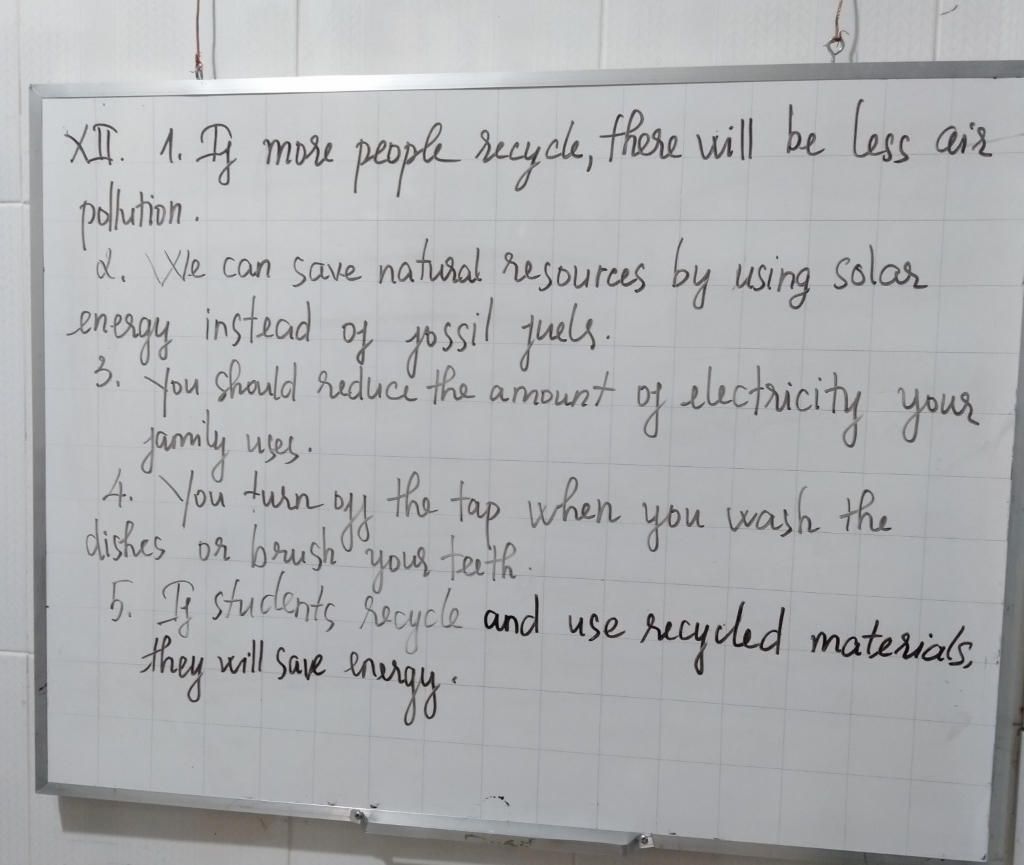 XII. 1. If more people recycle, there will be less air
pollution.
2. We can save natural resources by using solar
energy instead of fossil fuels.
3. You should reduce the amount of electricity your
family uses.
4. You turn off the tap when you wash the
dishes or brush your teeth.
5. If students recycle and use recycled materials,
they will save energy.